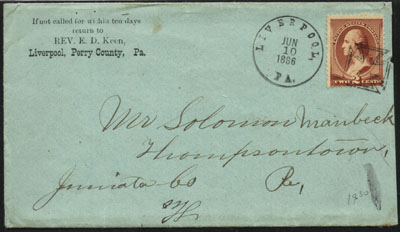 If not called for within ten days
return to
REV. E. D. Keen,
Liverpool, Perry County, Pa.
LIVERPOOL,
JUN
10
1886
PA.
TWO CENTS
Mr Solomon Manbeck
Thompsontown,
Juniata Co Pa,
1886